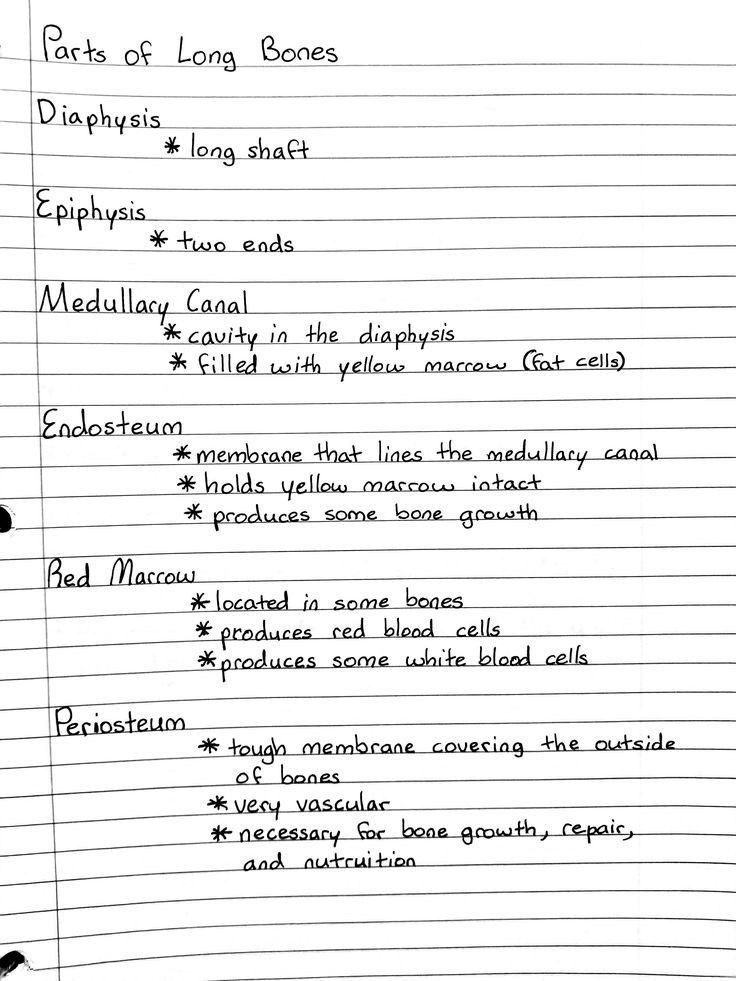 Parts of Long Bones
Diaphysis
* long shaft
Epiphysis
* two ends
Medullary Canal
* cavity in the diaphysis
* filled with yellow marrow (fat cells)
Endosteum
* membrane that lines the medullary canal
* holds yellow marrow intact
* produces some bone growth
Red Marrow
* located in some bones
* produces red blood cells
* produces some white blood cells
Periosteum
* tough membrane covering the outside
of bones
* very vascular
* necessary for bone growth, repair,
and nutruition